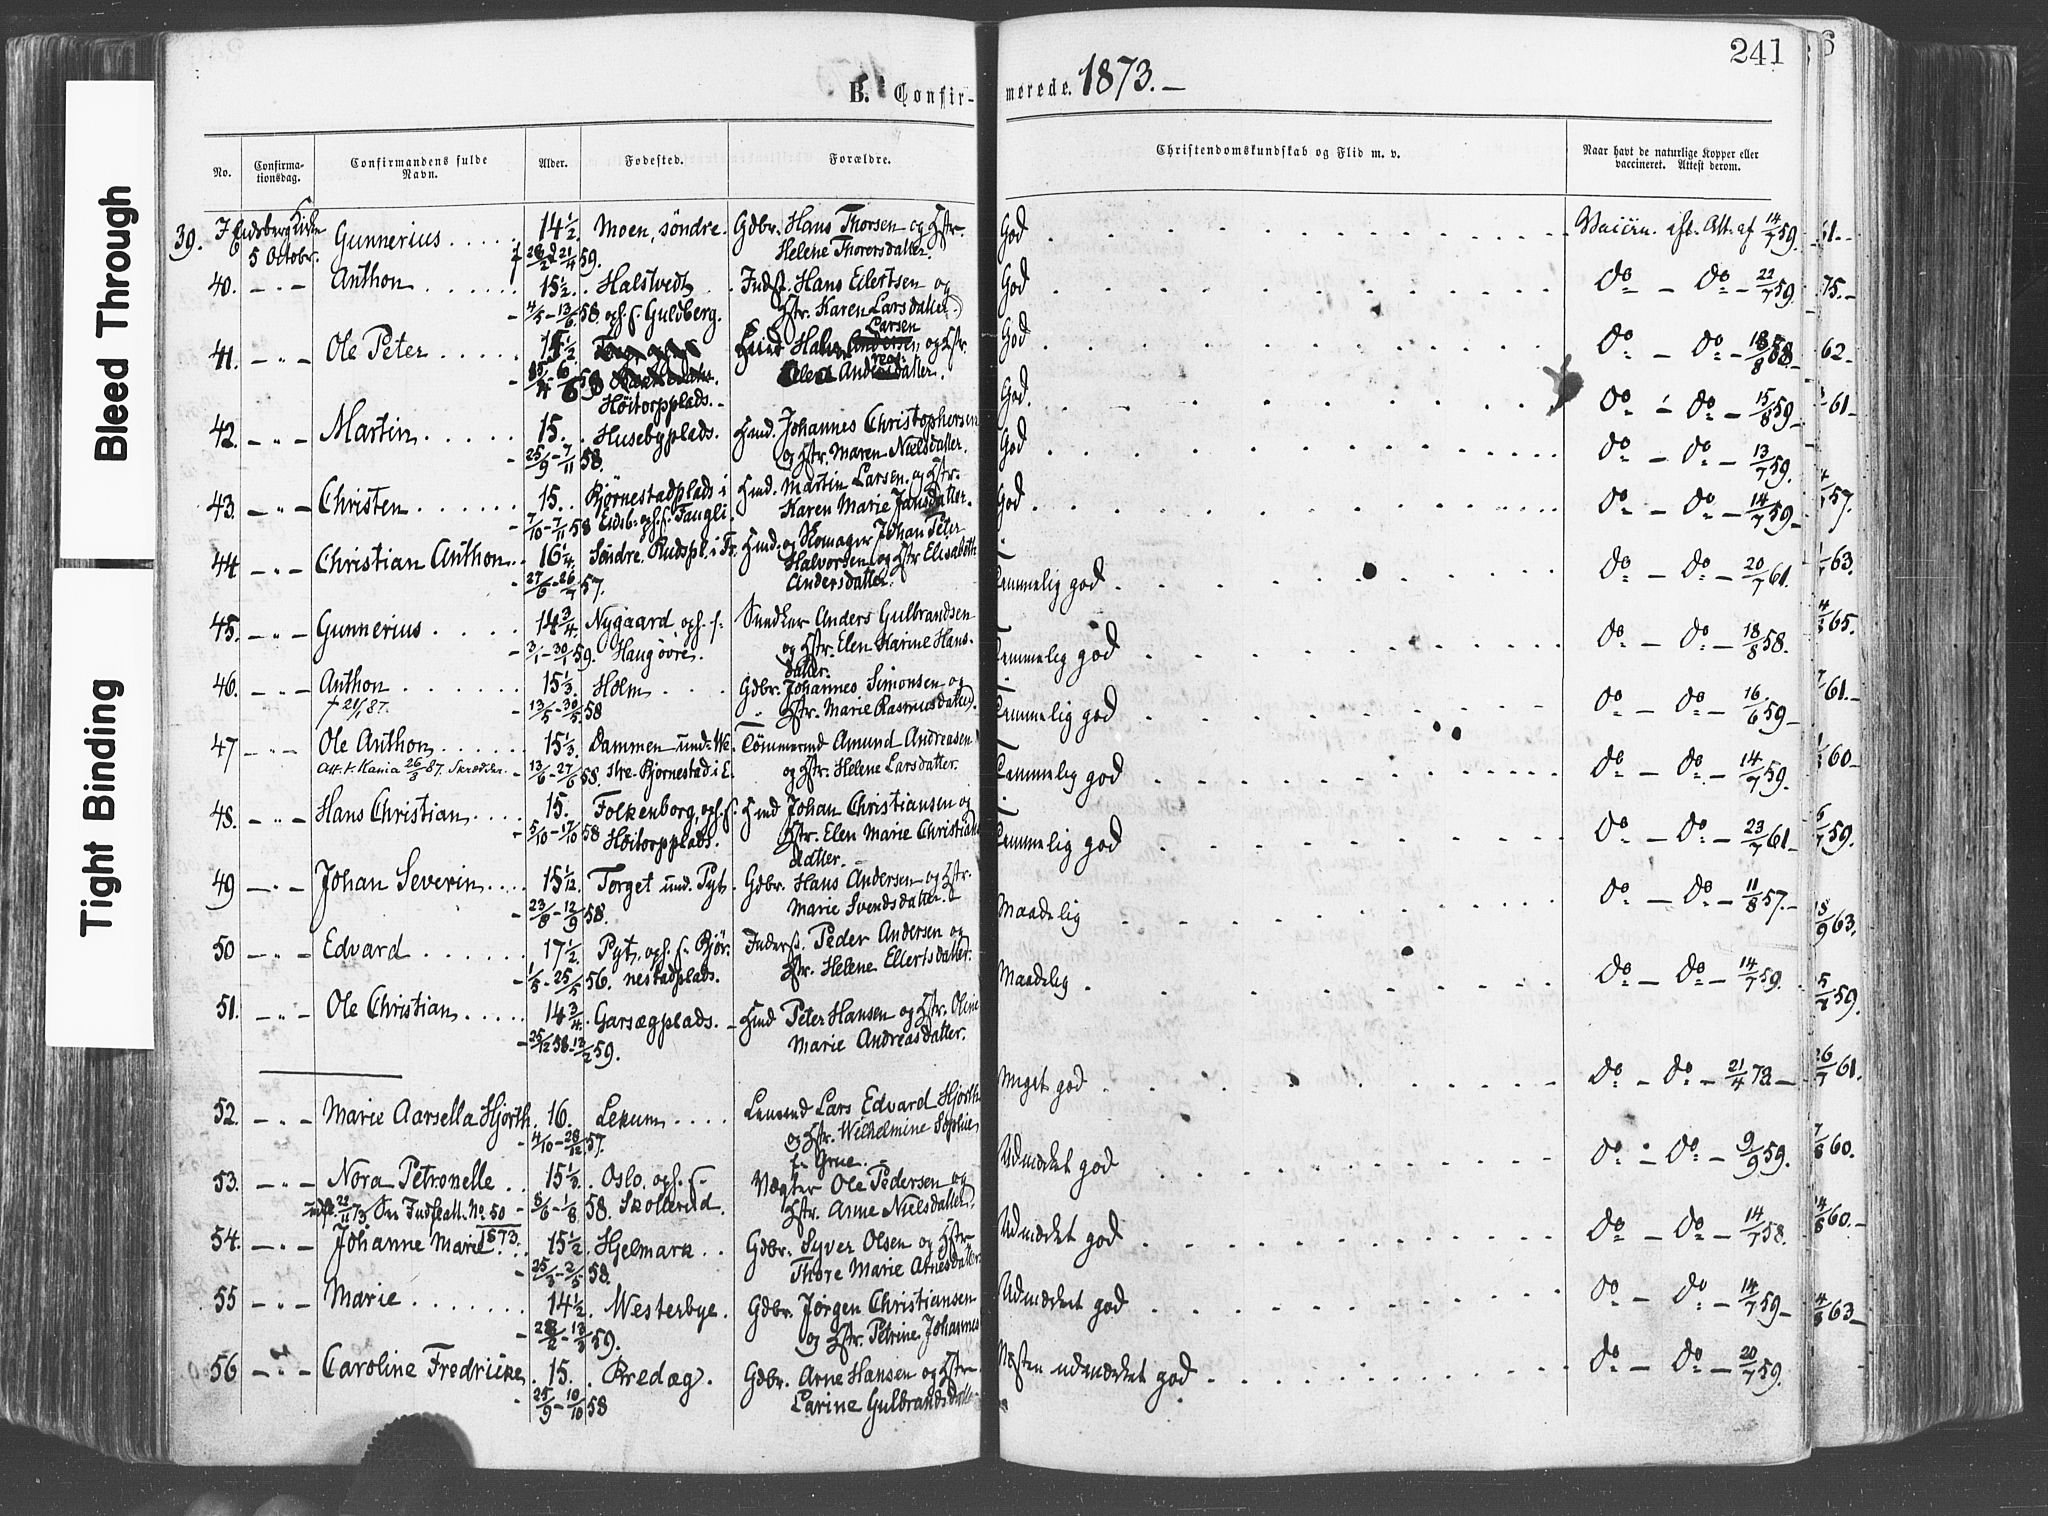 Bleed Through
Tight Binding
241
B. Confir-
merede. 1873.
No.
Confirma-
tionsdag.
Confirmandens fulde
Navn.
Alder.
Fødested.
Forældre.
Christendomskundskab og Flid m. v.
Naar havt de naturlige Kopper eller
vaccineret. Attest derom.
39. I Eidsberg Kirke Gunnerius 14 1/2 Moen, söndre. Gdbr. Hans Thorsen og Hstr. God Vaccin. Att. af 14/7 59.
5 Octobr. 21/4 59. Helene Thorersdatter.
40. Anthon 15 1/2 Halstvedt Indst. Hans Eilertsen og God Do Do 22/7 59.
4/5 - 13/6 58. oph. f. Guldberg. Hstr. Karen Larsdatter.
41. Ole Peter Larsen og Hstr. God Do Do
Andersdatter.
Höitorpplads.
42. Martin 15. Husebyplads. Hmd. Johannes Christophersen God. Do Do 15/8 59
25/9 - 7/11 58. og Hstr. Maren Nielsdatter.
43. Christen 15. Bjørnestadplads i Hmd. Martin Larsen og Hstr. God Do Do 13/7 59.
7/10 - 7/11 58 Eidsb. oph. f. Taugli. Karen Marie Jansdatter.
44 Christian Anthon 16 1/4. Söndre Rudspl. i Tr. Hmd. og Skomager Johan Peter God Do Do 14/7 59
27/6 - 26/7 57. Halvorsen og Hstr Elisabeth
Andersdatter.
45. Gunnerius 14 3/4. Nygaard oph. f. Snedker Anders Gulbrandsen Temmelig god Do Do 20/7 61.
3/1 - 30/1 59. Haugövre. og Hstr. Elen Karine Hans-
datter.
46. Anthon 15 1/3. Holm Gdbr. Johannes Simonsen og Temmelig god Do Do 18/8 58.
† 21/1 87. 13/5 - 30/5 58 Hstr. Marie Rasmusdatter.
47 Ole Anthon 15 1/3. Dammen und. Ve- Tömmermd Amund Andreasen Temmelig god Do Do 16/6 59
Att. t. Kania 26/3 87. Skrædder. 13/6 - 27/6 58. stre Bjørnestad i E. og Hstr. Helene Larsdatter.
48. Hans Christian 15. Folkenborg, oph. f. Hmd Johan Christiansen og Temmelig god Do Do 14/7 59.
5/10 - 17/10 58 Höitorpplads. Hstr. Elen Marie Christians
datter.
49 Johan Severin 15 1/12. Torget und. Pyt Gdbr. Hans Andersen og Hstr. Temmelig god Do Do 23/7 61
23/8 - 12/9 58. Marie Svendsdatter.
50 Edvard 17 1/2. Pyt, oph. f. Bjør- Inderst. Peder Andersen og Maadelig Do Do 11/8 57.
1/5 - 25/5 56. nestadplads. Hstr. Helene Ellertsdatter.
51. Ole Christian 14 3/4. Garsægplads. Hmd Peter Hansen og Hstr. Oline Maadelig Do Do 14/7 59.
25/12 58 - 13/2 59. Marie Andreasdatter.
52. Marie Aarsella Hjorth 16. Lekum Lensmd Lars Edvard Hjorth Meget god Do Do 21/4 73
4/10 - 28/12 57. og Hstr. Wilhelmine Sophie
f. Grue.
53. Nora Petronelle 15 1/3. Oslo, oph. f. Vægter Ole Pedersen og Udmærket god Do Do 9/9 59.
5/6 - 1/8 58. Skollerud. Hstr. Anne Nielsdatter.
No. 50
1873.
54. Johanne Marie 15 1/2 Hjelmark Gdbr. Syver Olsen og Hstr Udmærket god Do Do 14/7 58.
25/3 - 2/5 58. Thore Marie Arnesdatter
55 Marie 14 1/2. Westerbye. Gdbr. Jørgen Christiansen Udmærket god Do Do 14/7 59
28/2 - 13/3 59. og Hstr. Petrine Johannes
56 Caroline Fredrikke 15. Bredæg. Gdbr. Arne Hansen og Hstr Næsten udmærket god Do Do 20/7 59.
25/9 - 10/10 58 Larine Gulbrandsdatter